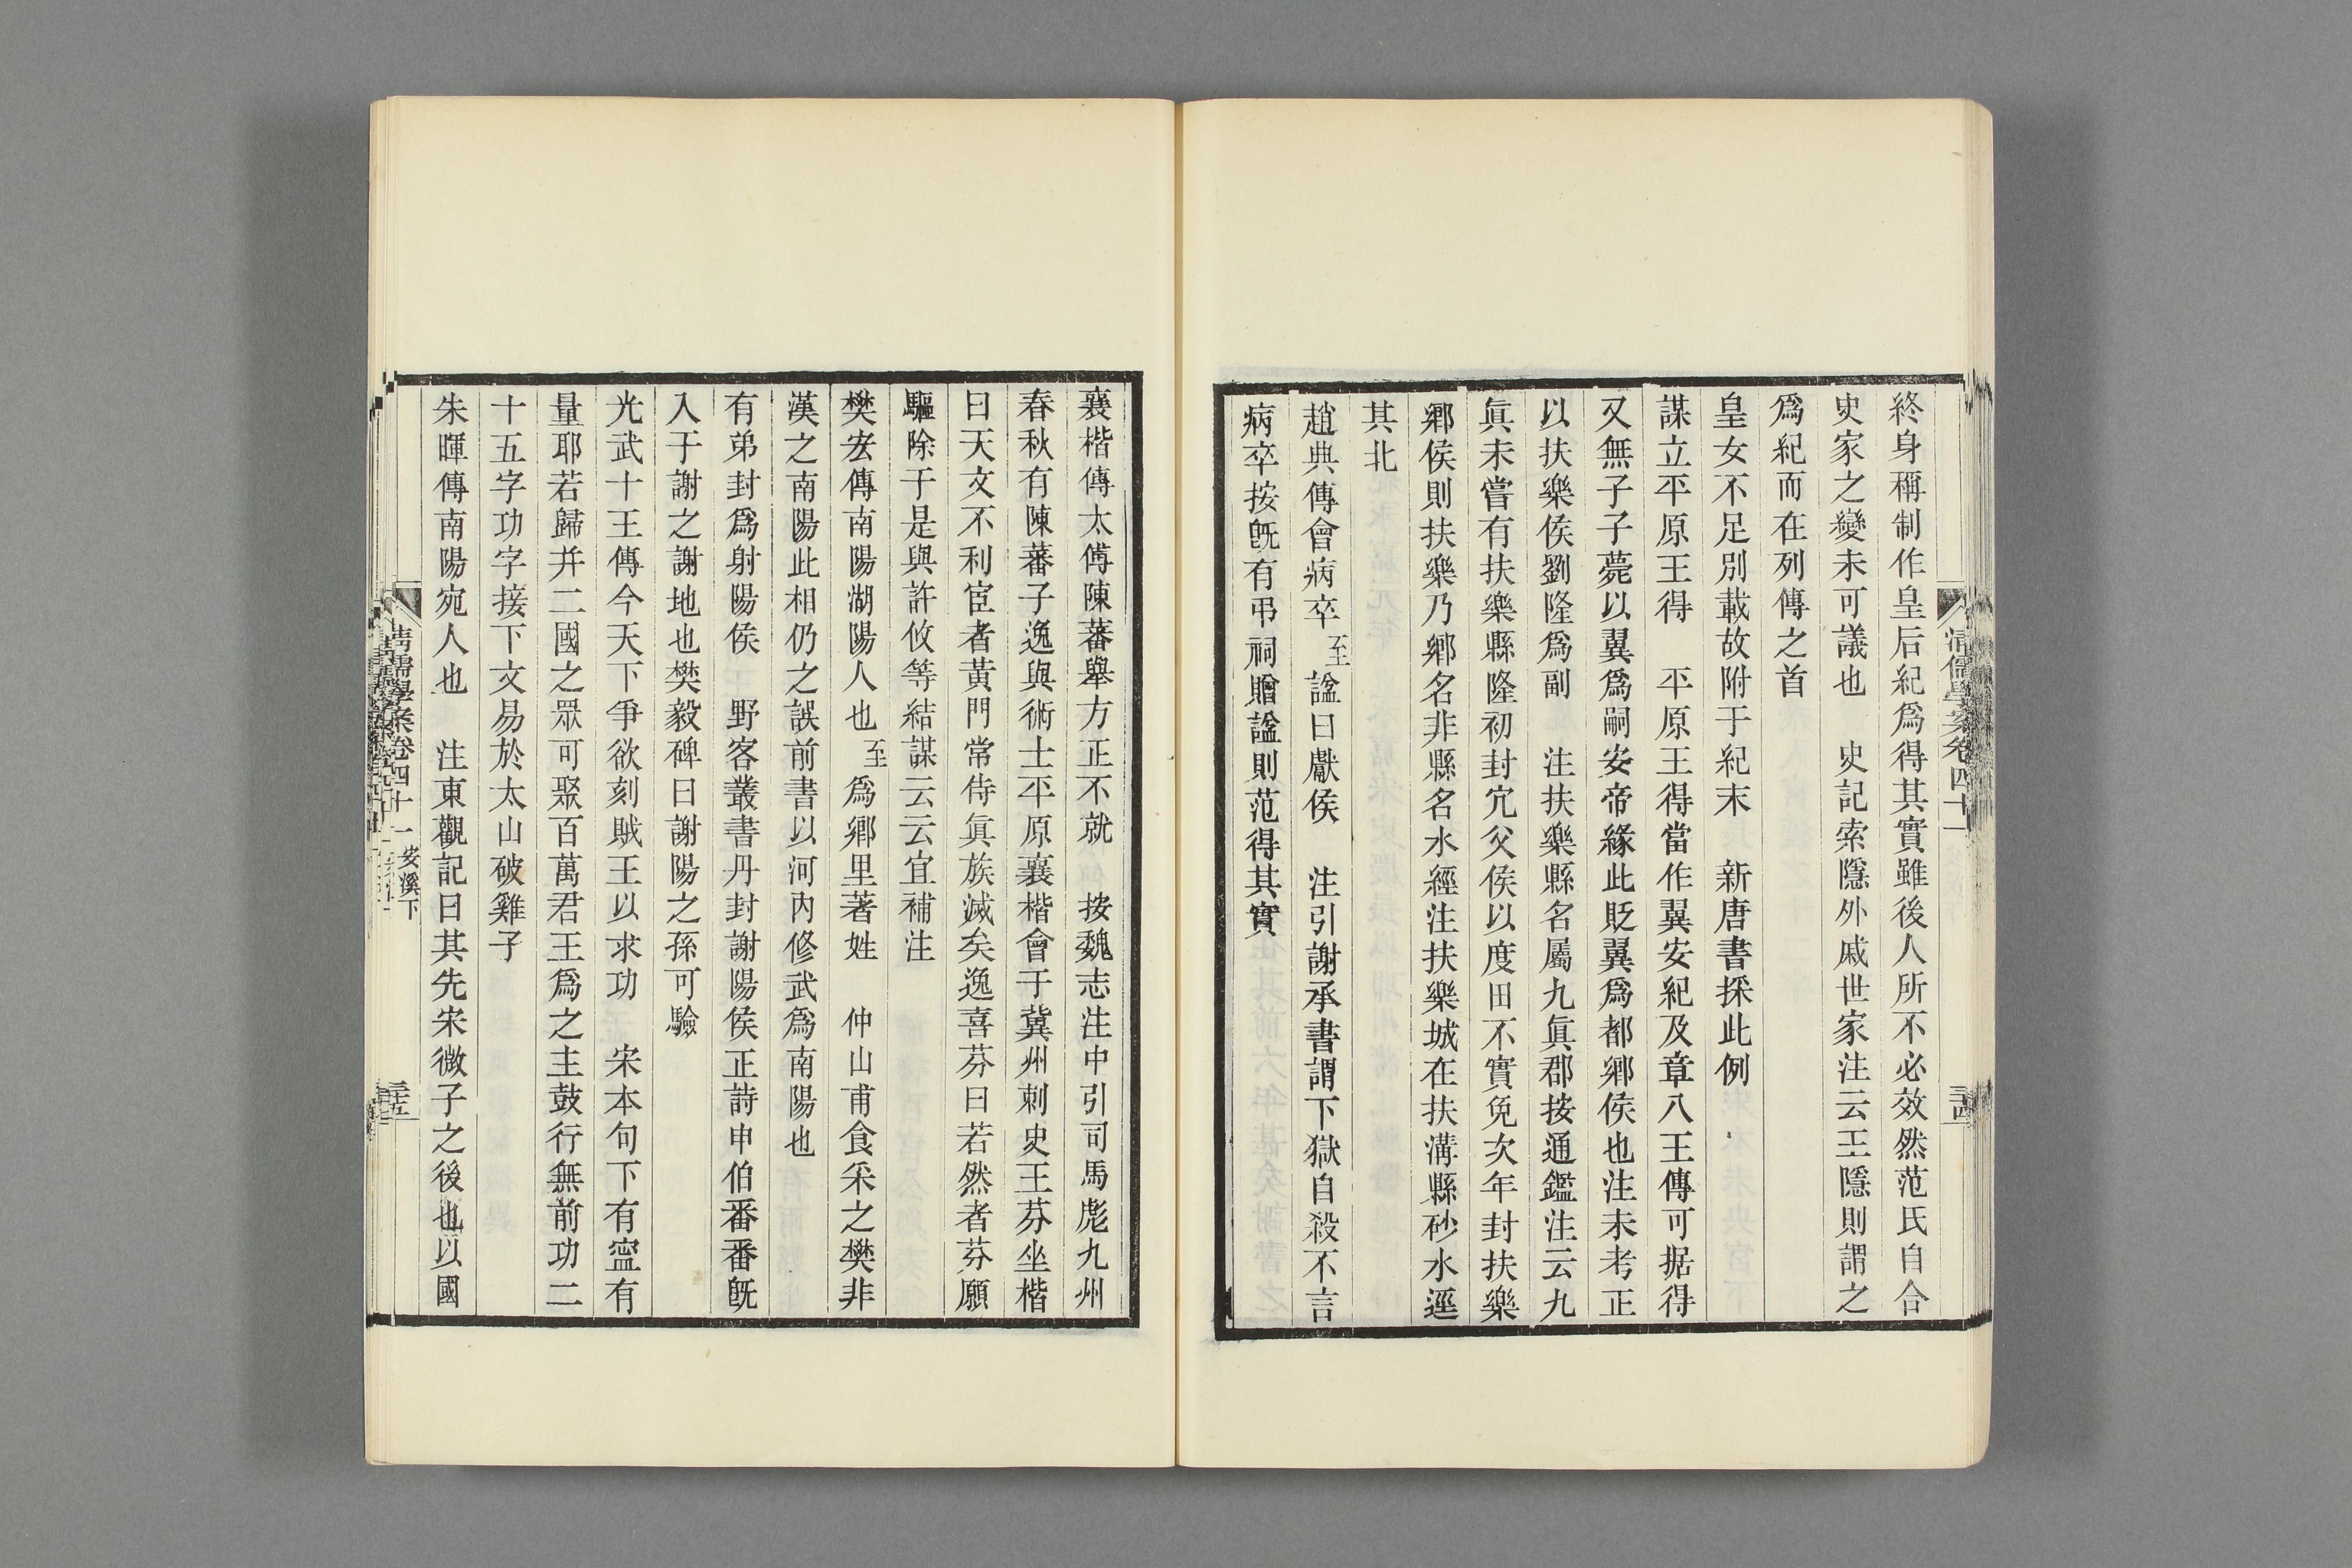 終身稱制作皇后紀爲得其實雖後人所不必效然范氏自合
史家之變未可議也　史記索隱外戚世家注云王隱則謂之
爲紀而在列傳之首
皇女不足別載故附于紀末　新唐書採此例
謀立平原王得　平原王得當作翼安紀及章八王傳可据得
又無子子薨以翼爲嗣安帝緣此貶翼爲都鄉侯也注未考正
以扶樂侯劉隆爲副　注扶樂縣名屬九眞郡按通鑑注云九
眞未嘗有扶樂縣隆初封亢父侯以度田不實免次年封扶樂
鄉侯則扶樂乃鄉名非縣名水經注扶樂城在扶溝縣砂水逕
其北
趙典傳會病卒至諡曰獻侯　注引謝承書謂下獄自殺不言
病卒按旣有弔祠贈諡則范得其實
清儒學案卷四十一
三十四
襄楷傳太傅陳蕃舉方正不就　按魏志注中引司馬彪九州
春秋有陳蕃子逸與術士平原襄楷會于冀州刺史王芬坐楷
曰天文不利宦者黃門常侍眞族滅矣逸喜芬曰若然者芬願
驅除于是與許攸等結謀云云宜補注
樊宏傳南陽湖陽人也至爲鄉里著姓　仲山甫食采之樊非
漢之南陽此相仍之誤前書以河內修武爲南陽也
有弟封爲射陽侯　野客叢書丹封謝陽侯正詩申伯番番旣
入于謝之謝地也樊毅碑曰謝陽之孫可驗
光武十王傳今天下爭欲刻賊王以求功　宋本句下有寍有
量耶若歸幷二國之眾可聚百萬君王爲之主鼓行無前功二
十五字功字接下文易於太山破雞子
朱暉傳南陽宛人也　注東觀記曰其先宋微子之後也以國
清儒學案卷四十一　安溪下
三十五